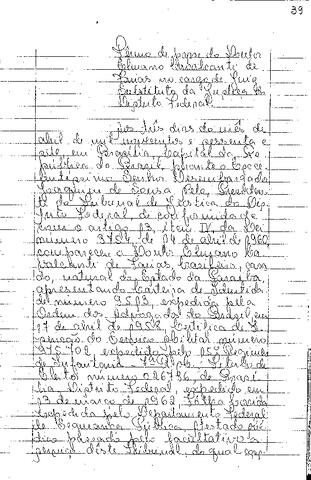 39
Termo de posse do Doutor
Elmano Cavalcanti de
Farias no cargo de Juiz
Substituto da Justiça do
Distrito Federal.
Aos três dias do mês de
abril de mil novecentos e sessenta e
sete, em Brasília, Capital da Re-
pública do Brasil, perante o Exce-
lentíssimo Senhor Desembargador
Joaquim de Sousa Neto, Presiden-
te do Tribunal de Justiça do Dis-
trito Federal, de conformidade
com o artigo 13, item IV, da Lei
número 3754, de 14 de abril de 1960,
compareceu o Doutor Elmano Ca-
valcanti de Farias, brasileiro, casa-
do, natural do Estado da Paraíba,
apresentando carteira de identida-
de número 9593, expedida pela
Ordem dos Advogados do Brasil, em
17 de abril de 1958, Certificado de I-
senção do Serviço Militar número
975.702, expedido pelo 15º Regimento
de Infantaria
Eleitor número 286756, de Brasí-
lia, Distrito Federal, expedido em
13 de março de 1962, Fôlha Corrida
expedida pelo Departamento Federal
de Segurança Pública, atestado mé-
dico passado pelo facultativo a
serviço dêste Tribunal, do qual